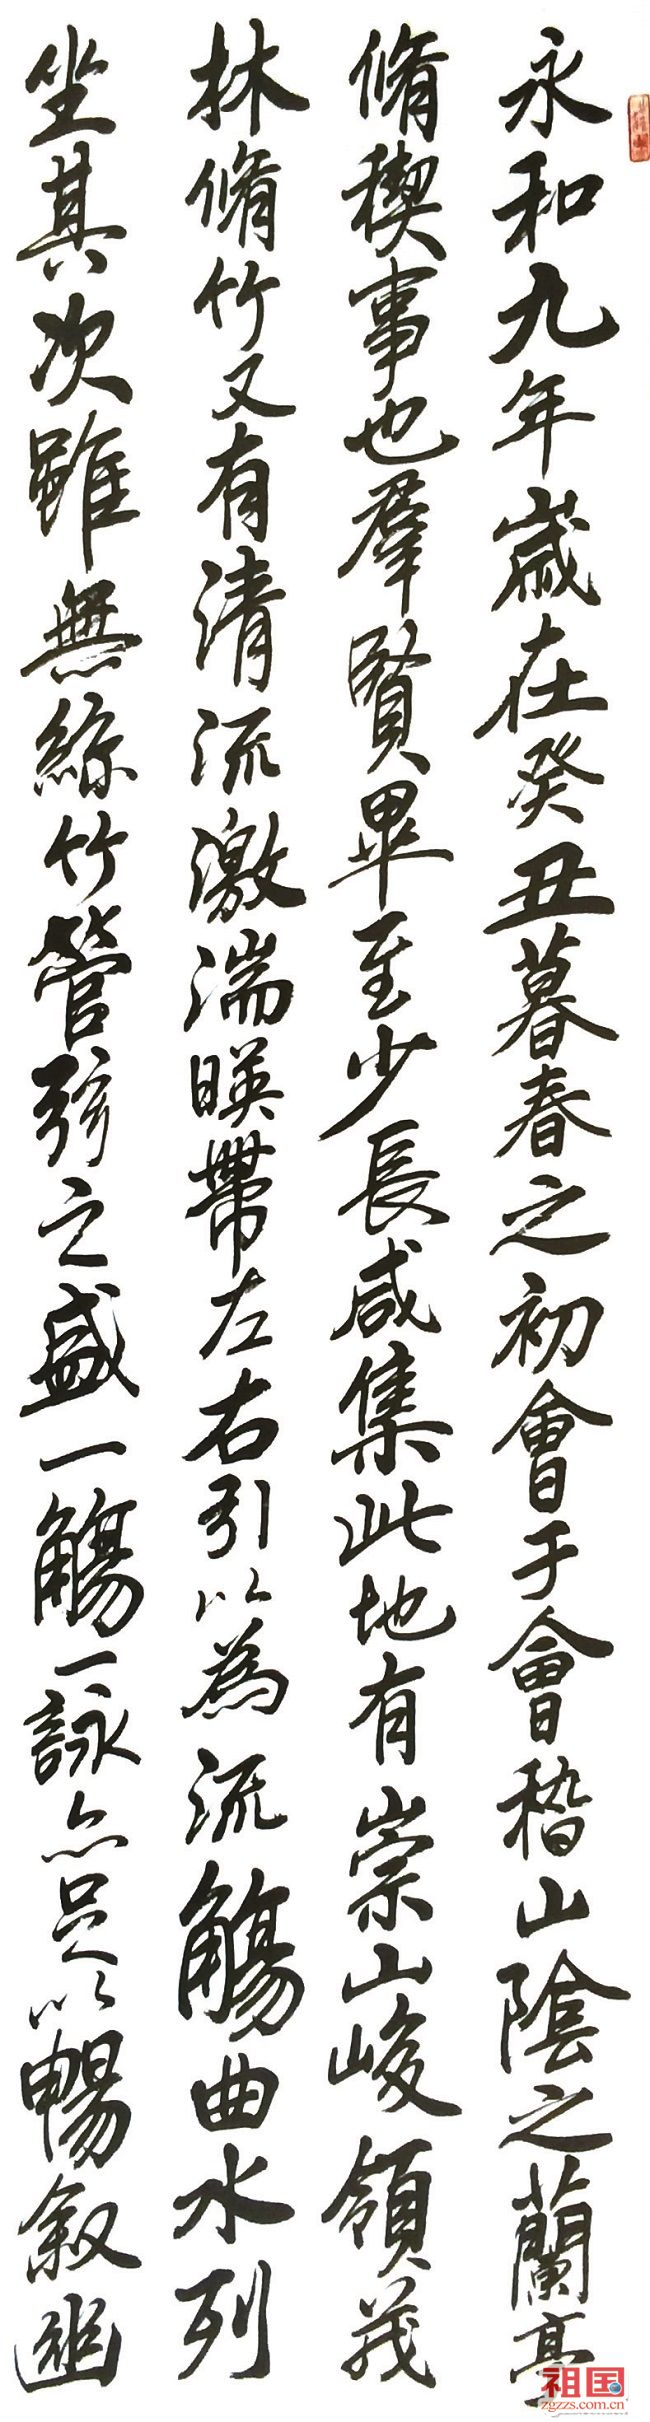 永和九年歲在癸丑暮春之初會于會稽山陰之蘭亭
脩稧事也羣賢畢至少長咸集此地有崇山峻領茂
林脩竹又有清流激湍暎帶左右引以為流觴曲水列
坐其次雖無絲竹管弦之盛一觴一詠亦足以暢叙幽
祖国
zgzzs.com.cn